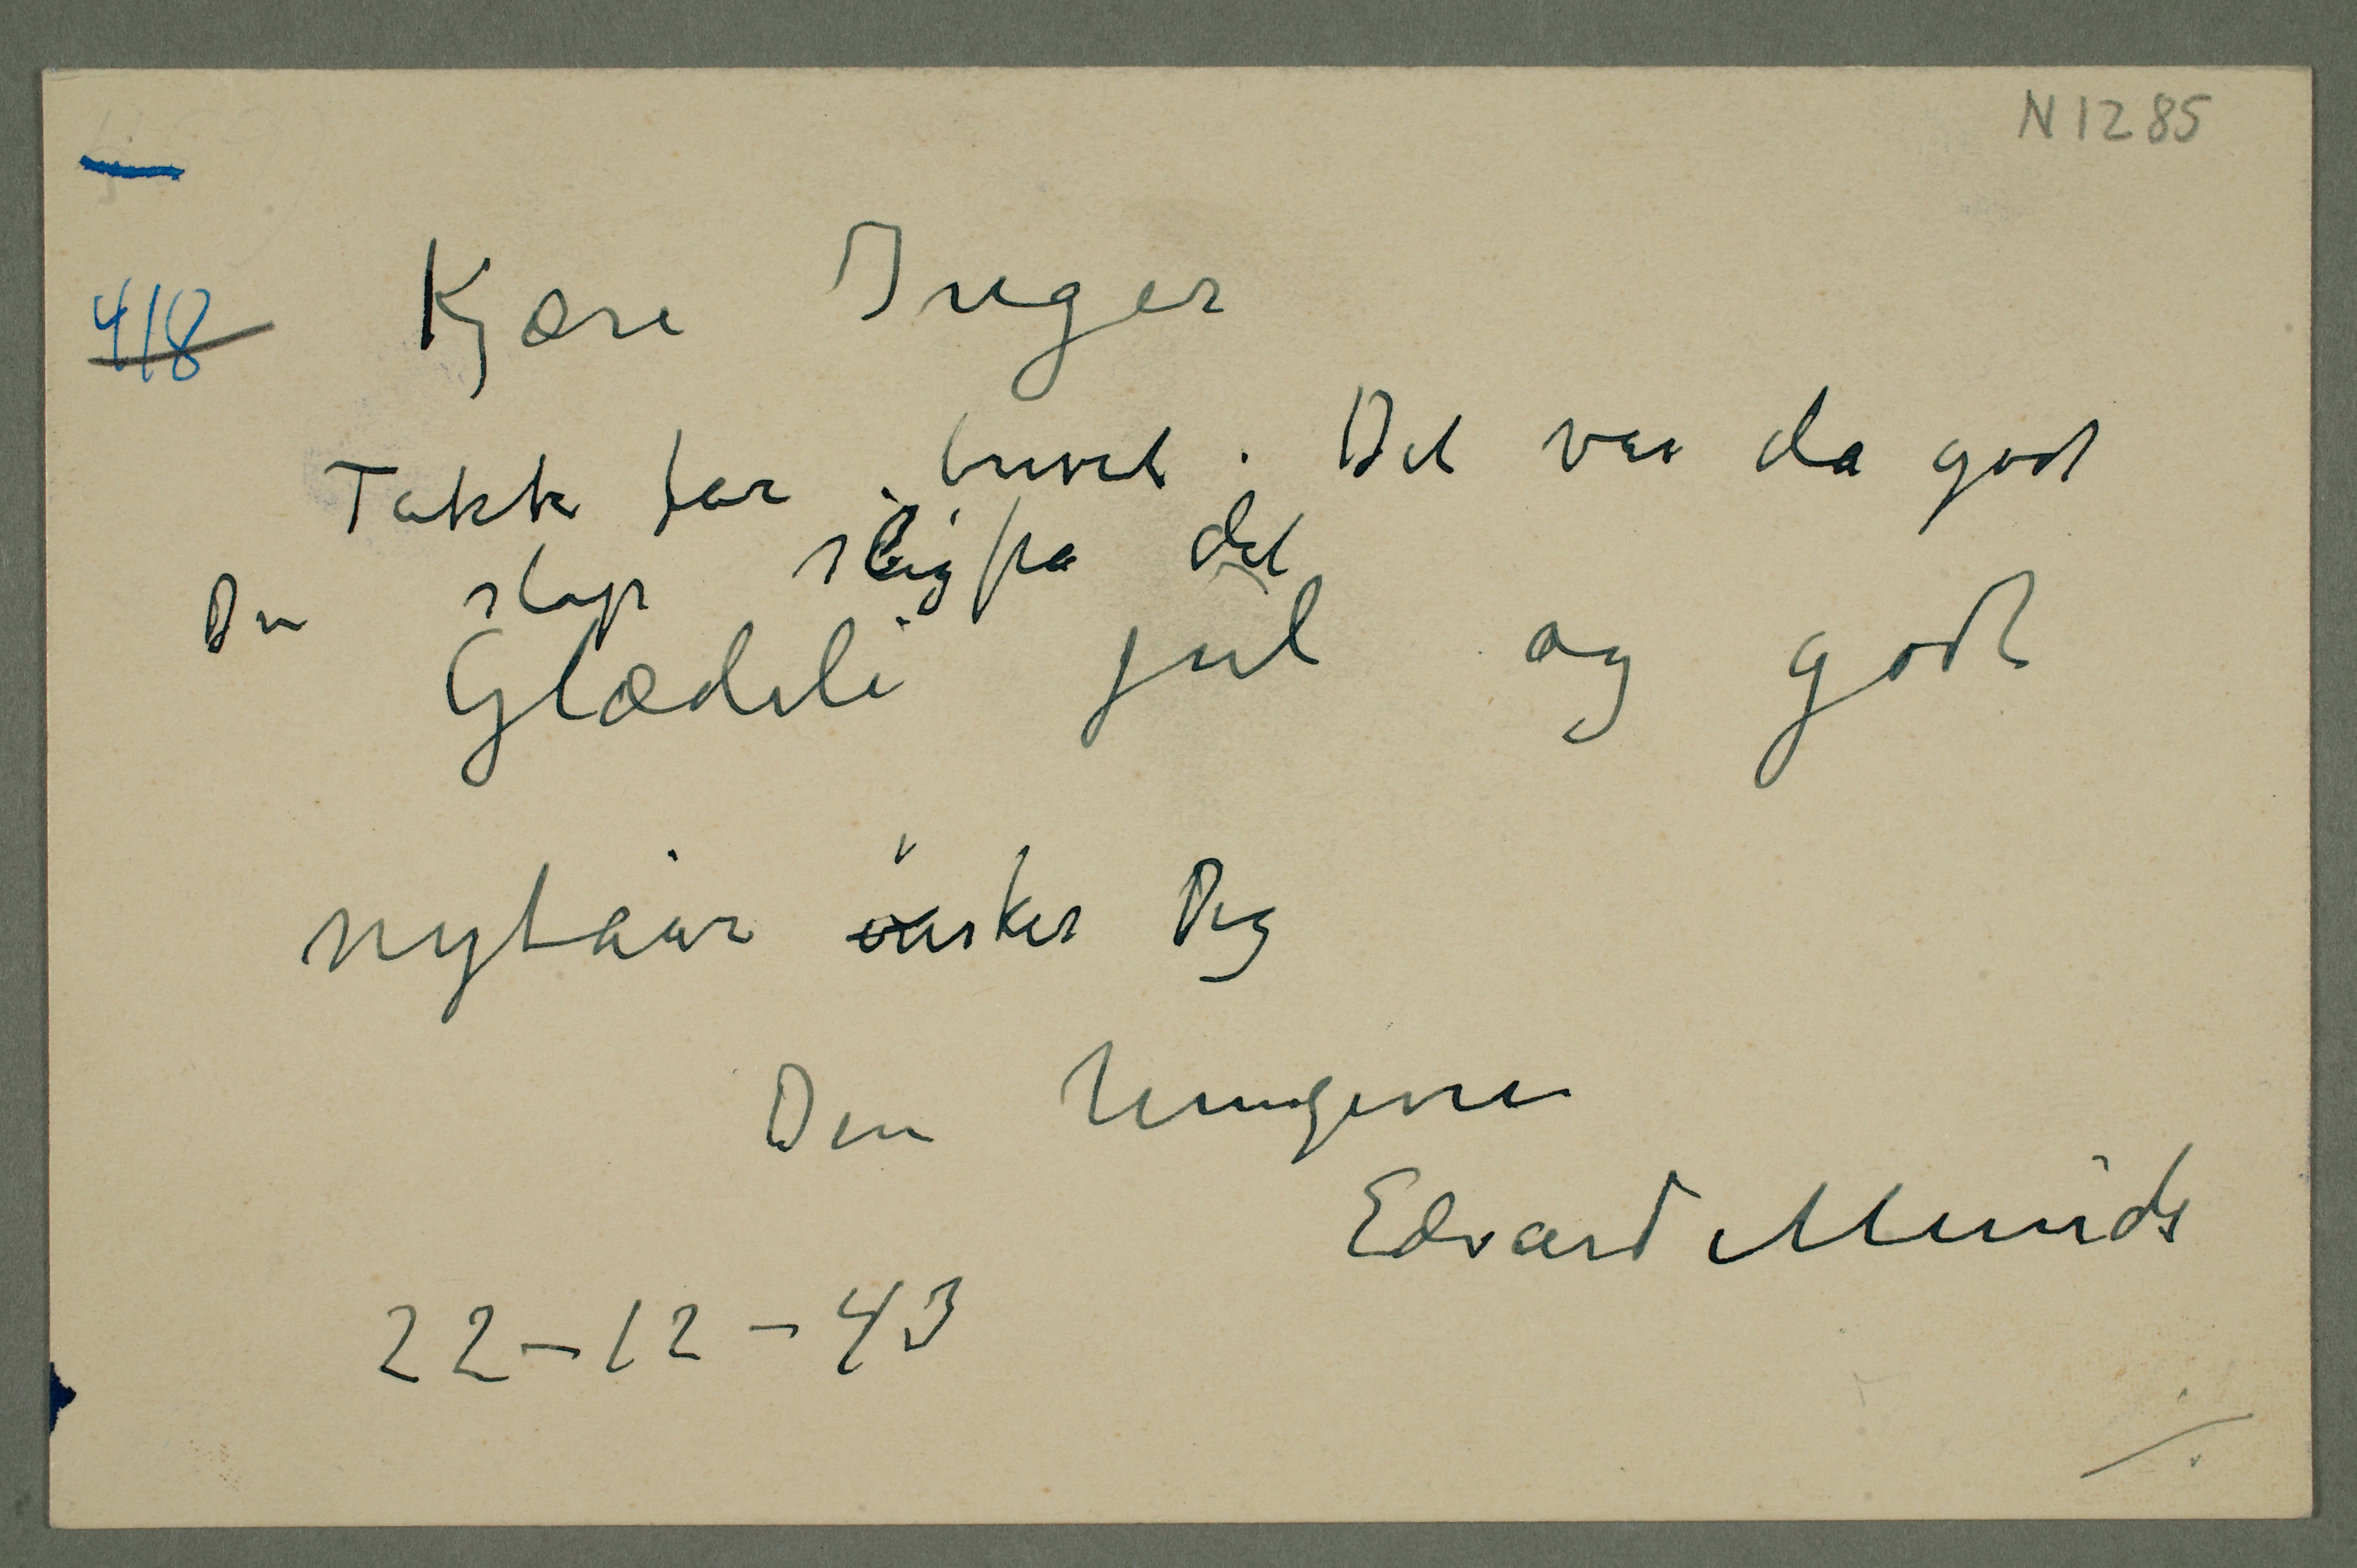 N 1285
418
Kjære Inger
Takk for brevet. Det var da godt
Du slap slig fra det
Glædeli jul og godt
nytaar ønsker Dig
Din hengivne
Edvard Munch
22–12–43